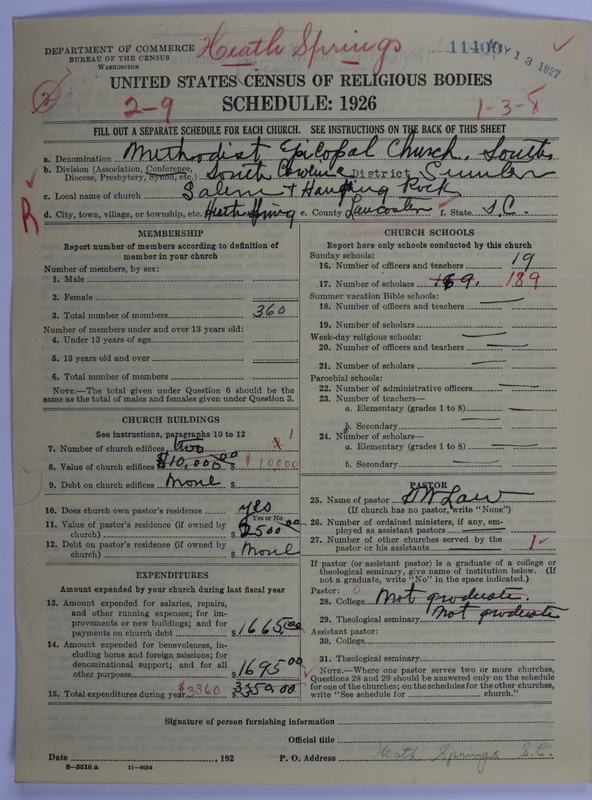 DEPARTMENT OF COMMERCE
BUREAU OF THE CENSUS
WASHINGTON
Heath Springs
11400
MAY 13 1927
UNITED STATES CENSUS OF RELIGIOUS BODIES
SCHEDULE: 1926
2-9
1-3-
FILL OUT A SEPARATE SCHEDULE FOR EACH CHURCH. SEE INSTRUCTIONS ON THE BACK OF THIS SHEET
a. Denomination Methodist Episcopal Church, South
b. Division (Association, Conference, Diocese, Presbytery, Synod, etc.) South Carolina District Sumter
c. Local name of church Salem & Hanging Rock
d. City, town, village, or township, etc. Heath Spring e. County Lancaster f. State S.C.
R
MEMBERSHIP
Report number of members according to definition of
member in your church
Number of members, by sex:
1. Male
2. Female
3. Total number of members 360
Number of members under and over 13 years old:
4. Under 13 years of age
5. 13 years old and over
6. Total number of members
NOTE.—The total given under Question 6 should be the
same as the total of males and females given under Question 3.
CHURCH BUILDINGS
See instructions, paragraphs 10 to 12
7. Number of church edifices two 1
8. Value of church edifices $10,000.00 $ 10000
9. Debt on church edifices None $
10. Does church own pastor's residence yes
Yes or No
11. Value of pastor's residence (if owned by
church) $2500.00
12. Debt on pastor's residence (if owned by
church) $ None
EXPENDITURES
Amount expended by your church during last fiscal year
13. Amount expended for salaries, repairs,
and other running expenses; for im-
provements or new buildings; and for
payments on church debt $1665.00
14. Amount expended for benevolences, in-
cluding home and foreign missions; for
denominational support; and for all
other purposes $1695.00
15. Total expenditures during year $3360 $3350.00
CHURCH SCHOOLS
Report here only schools conducted by this church
Sunday schools:
16. Number of officers and teachers 19
17. Number of scholars 169. 189
Summer vacation Bible schools:
18. Number of officers and teachers
19. Number of scholars
Week-day religious schools:
20. Number of officers and teachers
21. Number of scholars
Parochial schools:
22. Number of administrative officers
23. Number of teachers—
a. Elementary (grades 1 to 8)
b. Secondary
24. Number of scholars—
a. Elementary (grades 1 to 8)
b. Secondary
PASTOR
25. Name of pastor Law
(If church has no pastor, write "None")
26. Number of ordained ministers, if any, em-
ployed as assistant pastors
27. Number of other churches served by the
pastor or his assistants 1
If pastor (or assistant pastor) is a graduate of a college or
theological seminary, give name of institution below. (If
not a graduate, write "No" in the space indicated.)
Pastor: 0
28. College Not graduate.
29. Theological seminary Not graduate
Assistant pastor:
30. College
31. Theological seminary
NOTE.—Where one pastor serves two or more churches,
Questions 28 and 29 should be answered only on the schedule
for one of the churches; on the schedules for the other churches,
write "See schedule for church."
Signature of person furnishing information
Official title
Date , 192 P. O. Address Heath Springs S.C.
8-5516 a 11-9064